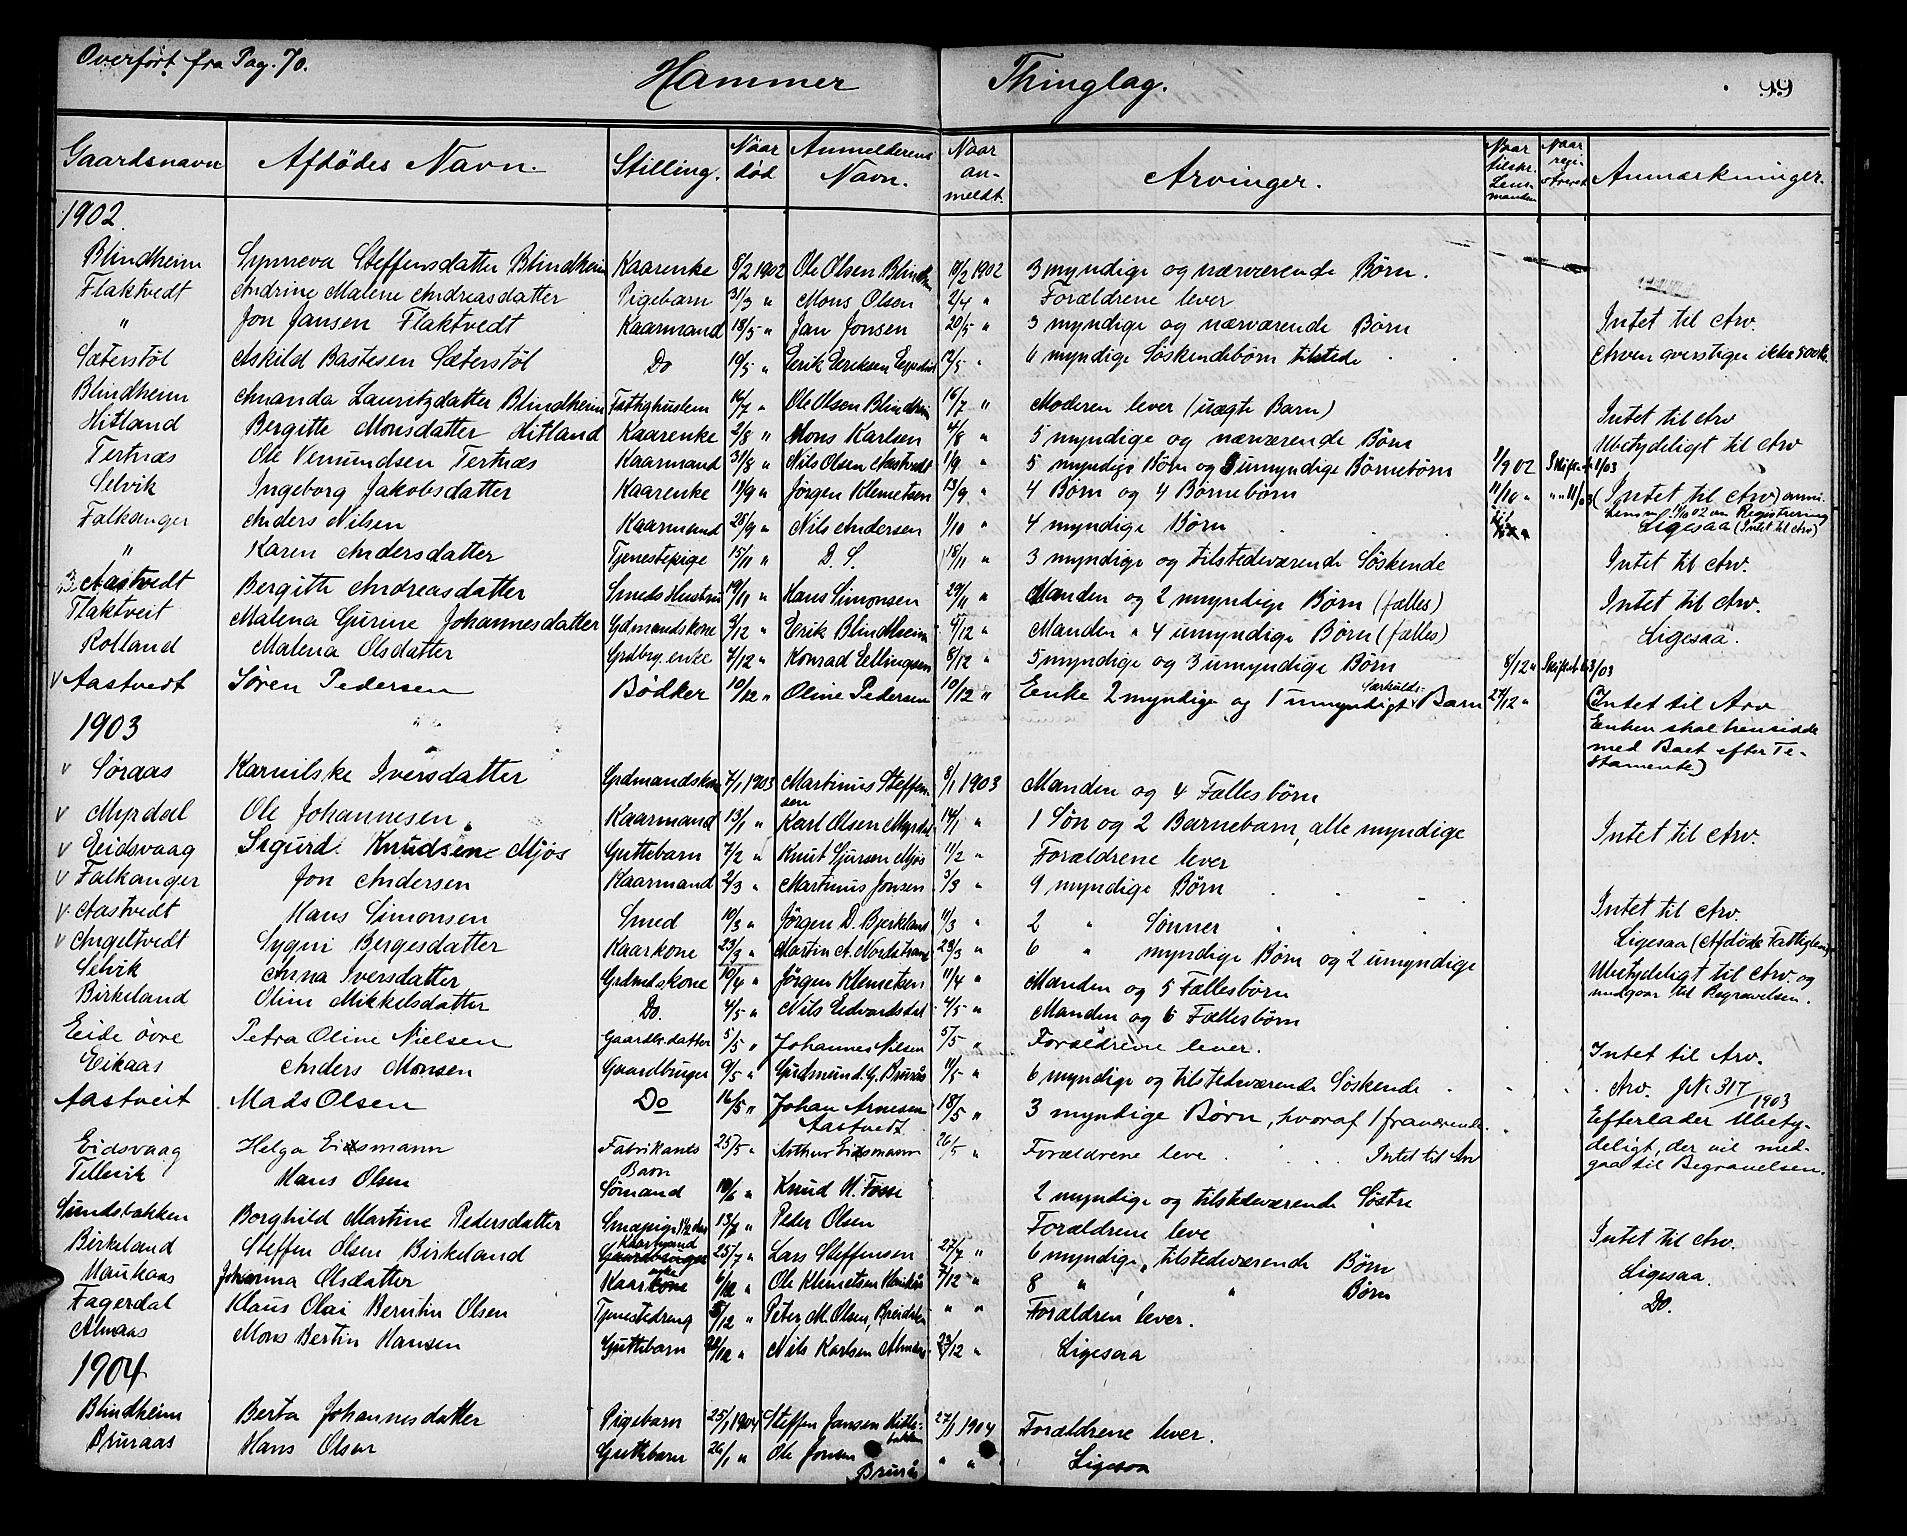 Overført fra Pag. 70.
Hammer Thinglag.
99
Gaardsnavn Afdödes Navn. Stilling. Naar död Anmelderens Navn. Naar anmeldt. Arvinger. Naar tilskr. Lensmanden Naar registreret Anmærkninger.
1902.
Blindheim Synneva Steffensdatter Blindheim Kaarenke 8/2 1902 Ole Olsen Blindh. 10/2 1902 3 myndige og nærværende Børn.
Flaktvedt Andrine Malene Andreasdatter Pigebarn 31/3 " Mons Olsen 2/4 " Forældrene lever
" Jon Jansen Flaktvedt Kaarmand 18/5 " Jan Jonsen 20/5 " 3 myndige og nærværende Børn Intet til Arv.
Sæterstøl Askild Bastesen Sæterstøl Do 10/5 " Erik Eriksen 12/5 " 6 myndige Søskendebørn tilstede Arven overstiger ikke 500 Kr.
Blindheim Amanda Lauritzdatter Blindheim Fattighuslem 14/7 " Ole Olsen Blindheim 16/7 " Moderen lever (uægte Barn) Intet til Arv
Hitland Bergitte Monsdatter Hitland Kaarenke 2/8 " Mons Karlsen 4/8 " 5 myndige og nærværende Børn Ubetydeligt til Arv
Tertnæs Ole Vemundsen Tertnæs Kaarmand 31/8 " Nils Olsen Aastvedt 1/9 " 5 myndige Børn og 5 umyndige Børnebørn 1/9 02
Selvik Ingeborg Jakobsdatter Kaarenke 11/9 " Jörgen Klemetsen 13/9 " 4 Børn og 4 Børnebørn 11/10 " (Intet til Arv)
Falkanger Anders Nilsen Kaarmand 28/9 " Nils Andersen 1/10 " 4 myndige Børn Ligesaa (Intet til Arv)
" Karen Andersdatter Tjenestepige 15/11 " D. S. 18/11 " 3 myndige og tilstedeværende Søskende Intet til Arv.
Aastvedt Bergitte Andreasdatter Smeds Hustru 19/11 " Hans Simonsen 29/11 " Manden og 2 myndige Børn (fælles) Intet til Arv.
Flaktveit Malena Gurine Johannesdatter Gdmandskone 3/12 " Erik Blindheim 4/12 " Manden " 4 umyndige Børn (fælles) Ligesaa.
Rolland Malena Olsdatter Grdbrg. enke 4/12 " Konrad Lellingsen 8/12 " 5 myndige og 3 umyndige Børn 8/12 "
v Aastvedt Søren Pedersen Bødker 10/12 " Oline Pedersen 10/12 " Enke 2 myndige og 1 umyndigt Særkulds- Barn 27/12 " (Intet til Arv
Enken skal hensidde
med Boet efter Te-
stamente)
1903
v Søraas Karnilske Iversdatter Grdmandskone 7/1 1903 Martinus Steffensen 8/1 1903 Manden og 4 Fællesbørn
v Myrdal Ole Johannesen Kaarmand 13/1 " Karl Olsen Myrdal 14/1 " 1 Søn og 2 Barnebarn, alle myndige Intet til Arv.
v Eidsvaag Sigurd Knudsen Mjös Guttebarn 7/2 " Knut Sjursen Mjös 11/2 " Forældrene lever
v Falkanger Jon Andersen Kaarmand 2/3 " Martinus Jonsen 3/3 " 9 myndige Børn
v Aastvedt Hans Simonsen Smed 10/3 " Jørgen D. Bjerkland 11/3 " 2 " Sønner Intet til Arv.
v Angeltvedt Sygni Bergesdatter Kaarkone 23/3 " Martin A. Nordstrand 23/3 " 6 " myndige Børn og 2 umyndige Ligesaa (Afdøde Fattiglem)
Selvik Anna Iversdatter Grdmdskone 10/4 " Jörgen Klemetsen 11/4 " Manden og 5 Fællesbørn Ubetydeligt til Arv og
medgaar til Begravelsen.
Birkeland Olin Mikkelsdatter Do. 4/5 " Nils Edvardsdal 4/5 " Manden og 6 Fællesbørn
Eide övre Petra Oline Nielsen Gaardbr. datter 5/5 " Johannes Nilsen 5/5 " Forældrene lever. Intet til Arv.
Eikaas Anders Monsen Gaardbruger 9/5 " Gudmund G. Bruraas 11/5 " 6 myndige og tilstedeværende Søskende Arv. J.N. 317/1903
Aastveit Mads Olsen Do 16/5 " Johan Arnesen Aastvedt 18/5 " 3 myndige Børn, hvoraf 1 fraværende Efterlader Ubety-
deligt, der vil med-
gaa til Begravelsen.
Eidsvaag Helga Eismann Fabrikants Barn 25/5 " Arthur Eismann 26/5 " Forældrene leve. Intet til Arv
Tellevik Hans Olsen Sømand 10/6 " Knud H. Fosse 2 myndige og tilstedeværende Søstre
Sundsbakken Borghild Martine Pedersdatter Smaapige 13/7 " Peder Olsen Forældrene leve Intet til Arv.
Birkeland Steffen Olsen Birkeland Kaarmand 25/7 " Lars Steffensen 27/7 " 6 myndige, tilstedeværende Børn Ligesaa.
Maukaas Johanna Olsdatter Kaarenke 6/12 " Ole Klemetsen 7/12 " 8 " " Børn Do.
Fagerdal Klaus Olai Berntin Olsen Tjenestedreng 5/12 " Peter M. Olsen, Breidalen " " Forældren lever.
Almaas Mons Bertin Hansen Guttebarn 22/12 " Nils Karlsen Almaas 23/12 " Ligesaa
1904
Blindheim Berta Johannesdatter Pigebarn 25/1 1904 Steffen Jansen 27/1 1904 Forældrene lever.
Bruraas Hans Olsen Guttebarn 26/1 " Ole Jonsen Brurås " " Ligesaa